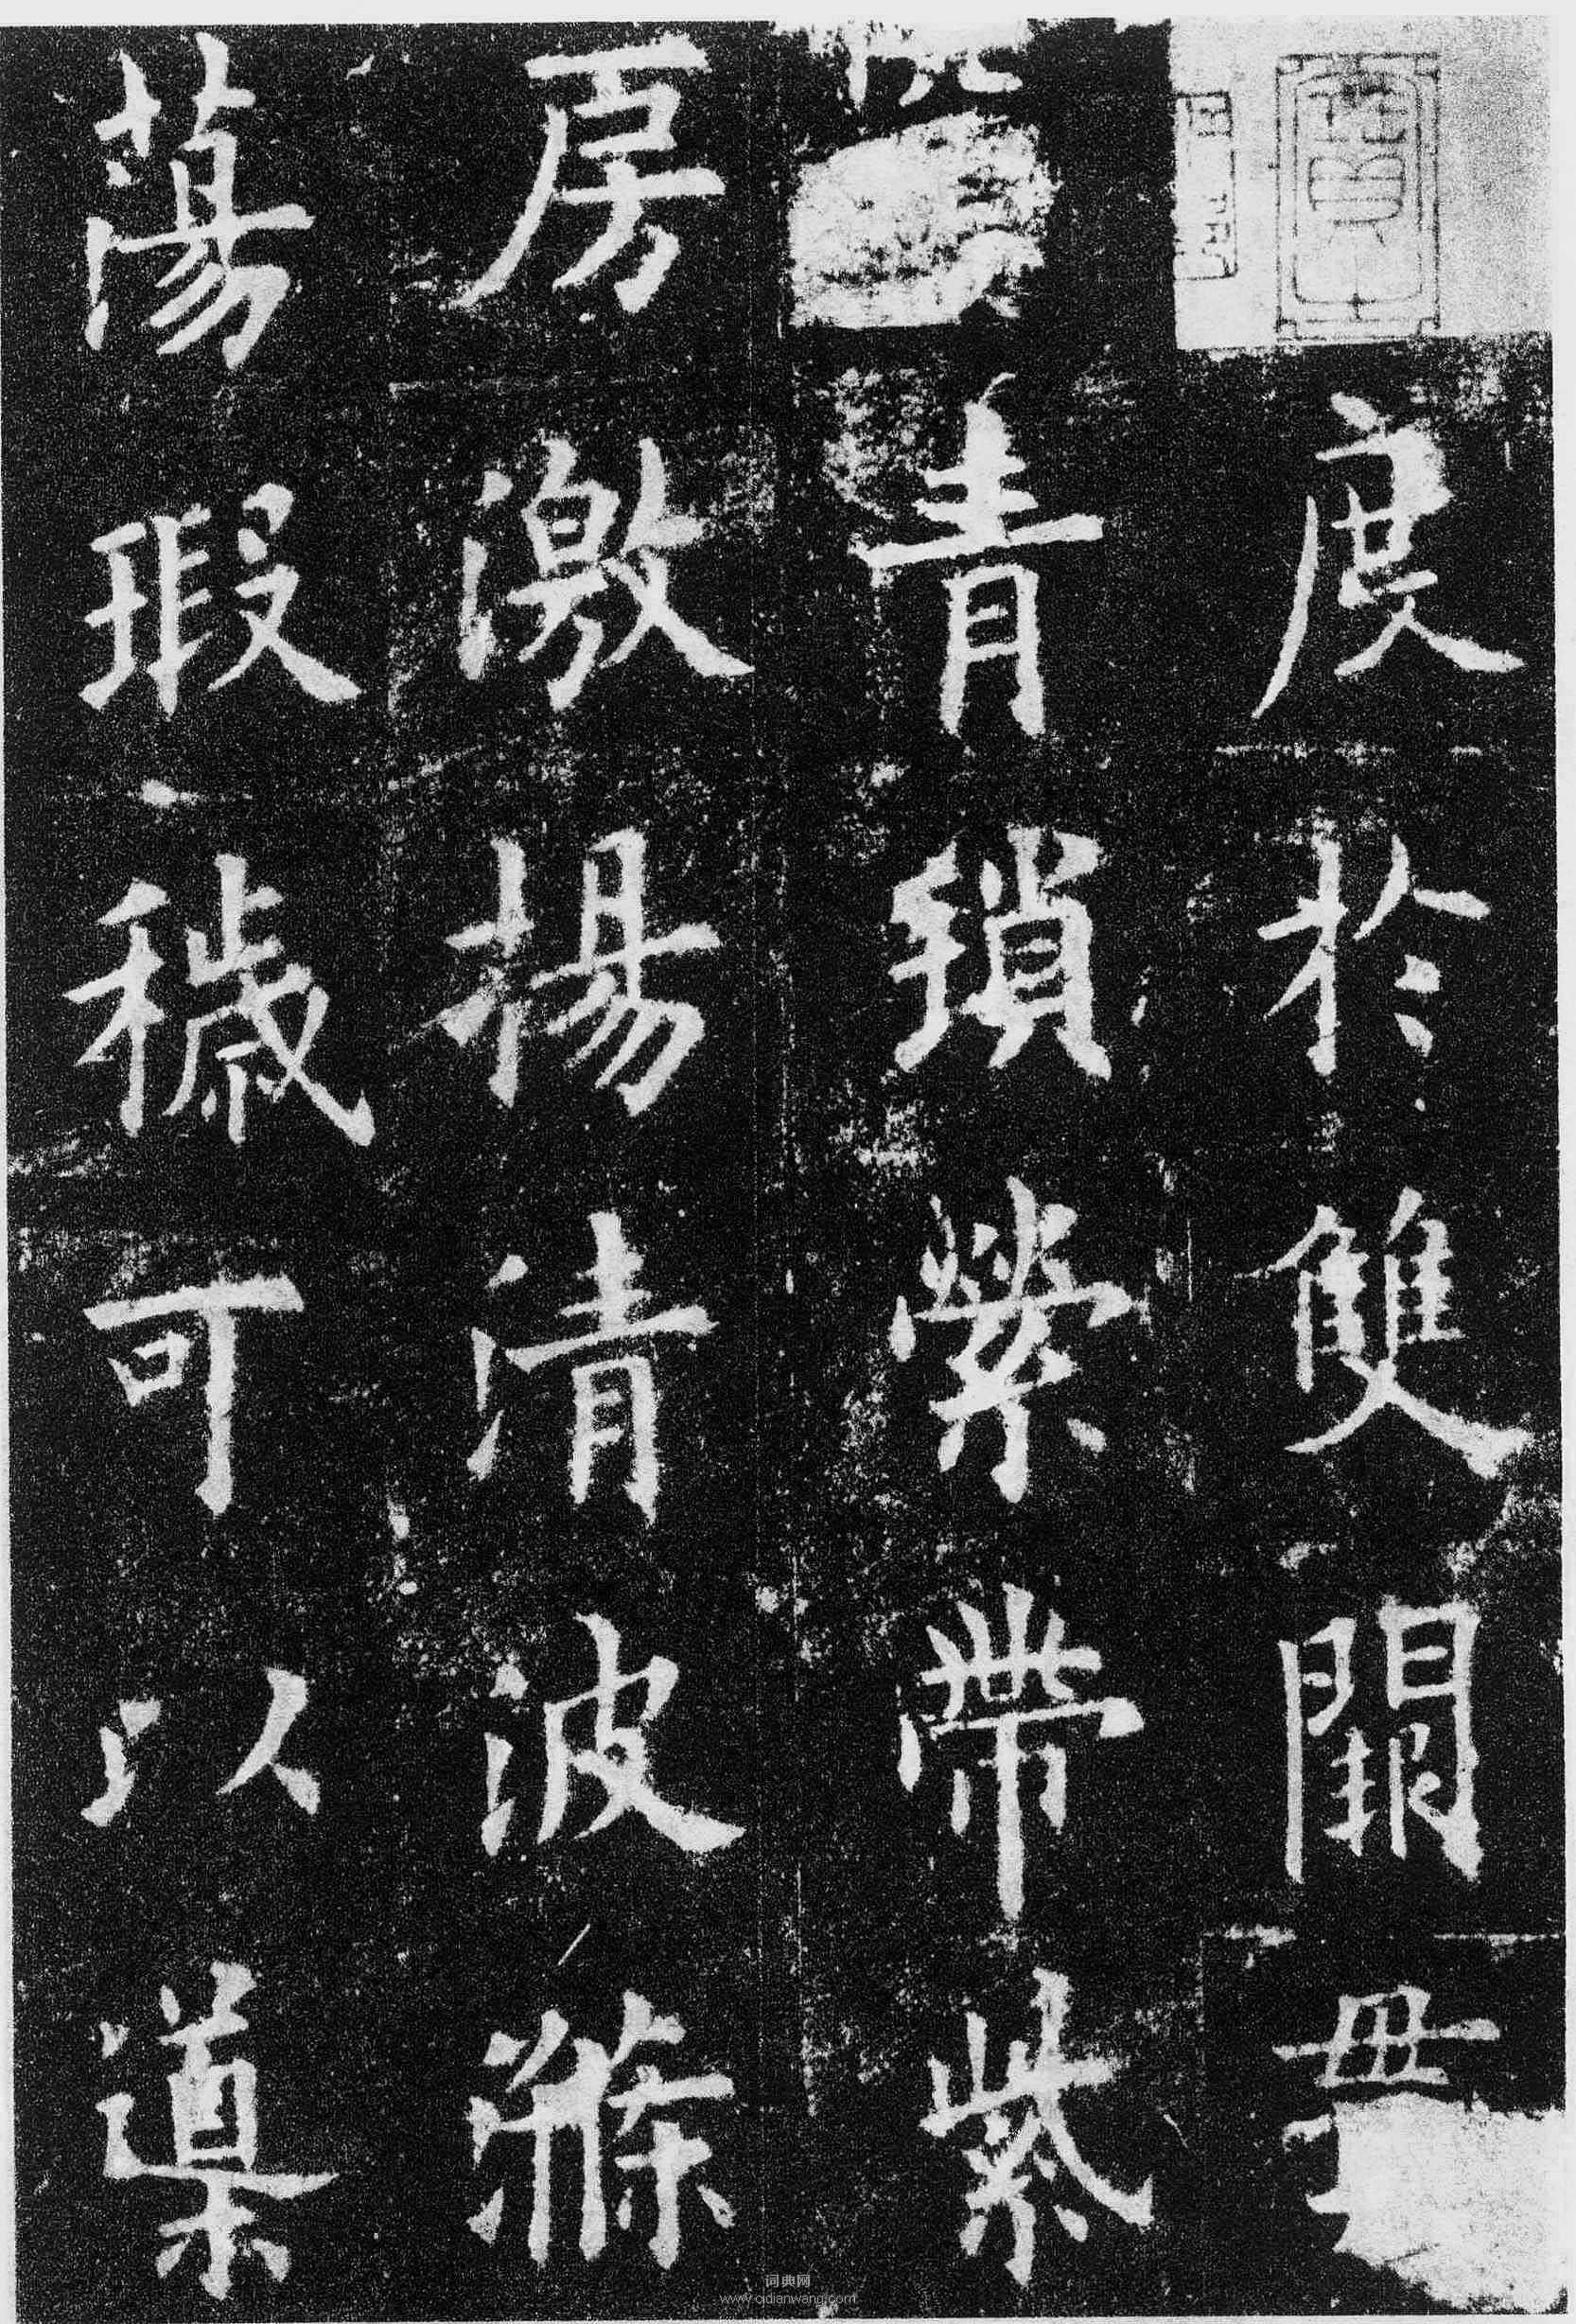 度於雙闕
青瑣縈帶紫
房激揚清波滌
蕩瑕穢可以導
词典网
www.cidianwang.com